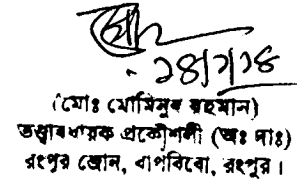 (মোঃ মোমিনুর রহমান)
তত্ত্বাবধায়ক প্রকৌশলী (অঃ দাঃ)
রংপুর জোন, বাপবিবো, রংপুর।